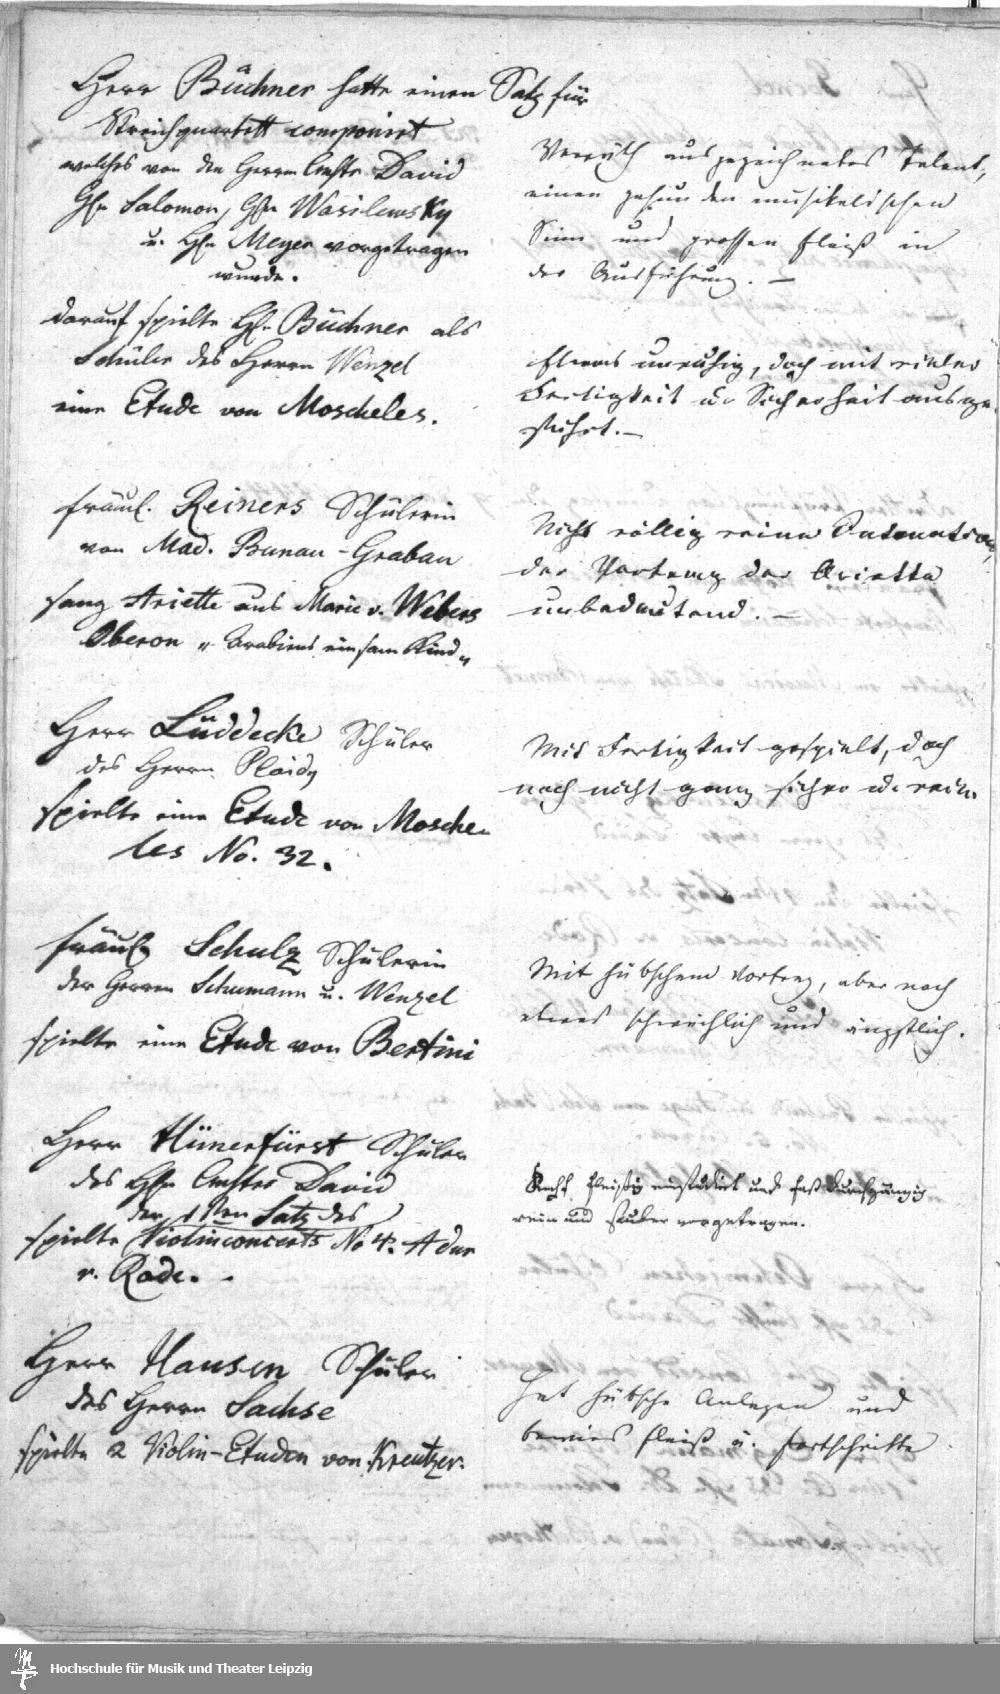 Herr Büchner hatte einen Satz für
Streichquartett componirt
welches von den Herrn David
Hr. Salomon, Hr. Wasilewsky
u. Hr. Meyer vorgetragen
wurde.
Verräth ausgezeichnetes Talent,
einen gesunden musikalischen
Sinn und grossen Fleiß in
der Ausführung. —
darauf spielte Hr. Büchner als
Schüler des Herrn Wenzel
eine Etude von Moscheles.
Etwas unruhig, doch mit vieler
Fertigkeit u. Sicherheit ausge-
führt. —
Fräul. Reiners Schülerin
von Mad. Bunau-Grabau
sang Ariette aus Marie v. Webers
Oberon „Arabiens einsam Kind„
Nicht völlig reine Intonation,
der Vortrag der Arietta
unbedeutend. —
Herr Lüddecke Schüler
des Herrn Plaidy
spielte eine Etude von Mosche-
les No. 32.
Mit Fertigkeit gespielt, doch
noch nicht ganz sicher u. rein.
Fräul. Schulz Schülerin
der Herren Schumann u. Wenzel
spielte eine Etude von Bertini
Mit hübschem Vortrag, aber noch
etwas schwächlich und ängstlich.
Herr Hünerfürst Schüler
des Hr. David
den 1sten Satz des
spielte Violinconcerts No 4. A dur
v. Rode. -
Recht fleißig einstudirt und fast durchgängig
rein und sauber vorgetragen.
Herr Hausen Schüler
des Herrn Sachse
spielte 2 Violin-Etuden von Kreutzer.
Hat hübsche Anlagen und
bewies Fleiß u. Fortschritte
Hochschule für Musik und Theater Leipzig